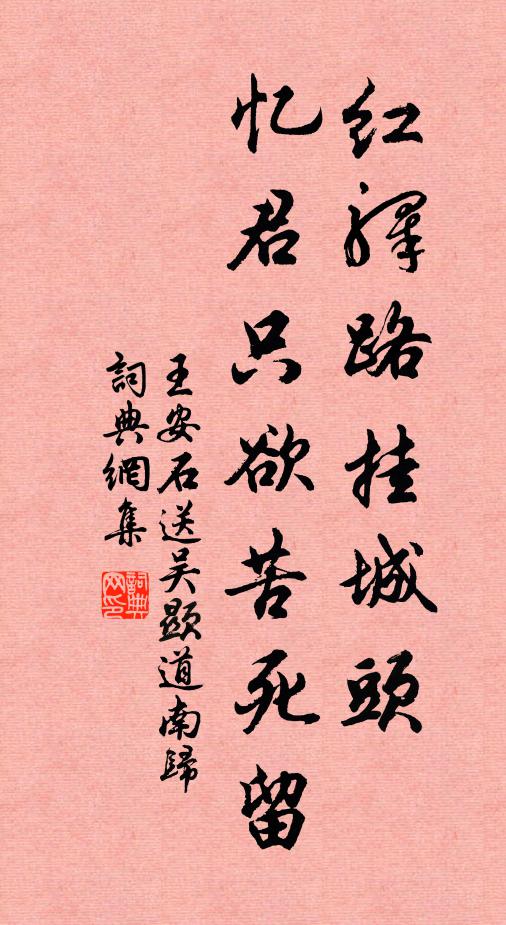 红驛路挂城頭
忆君只欲苦死留
王安石送吴顕道南歸
詞典網集
詞典网印